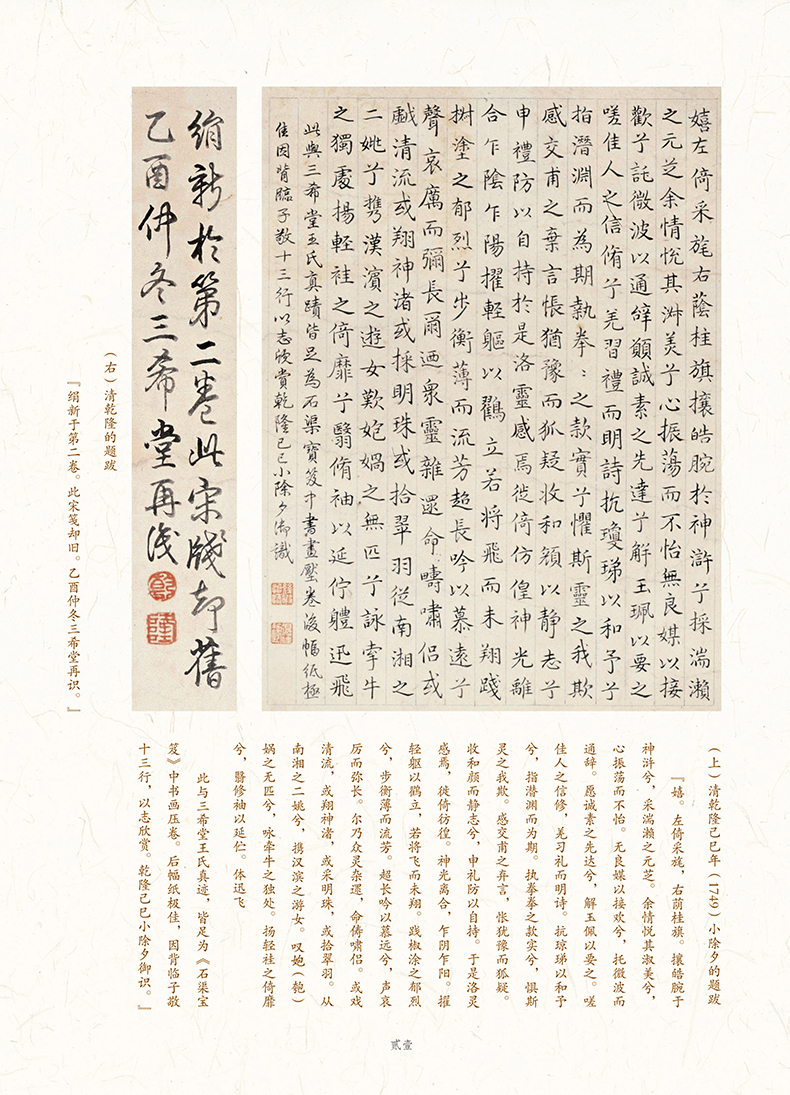 嬉左倚采旄右蔭桂旗攘皓腕於神滸兮採湍瀨
之元芝余情悅其淑美兮心振蕩而不怡無良媒以接
歡兮託微波以通辭願誠素之先達兮解玉珮以要之
嗟佳人之信脩兮羌習禮而明詩抗瓊珶以和予兮
指潛淵而為期執拳〻之款實兮懼斯靈之我欺
感交甫之棄言悵猶豫而狐疑收和顏以靜志兮
申禮防以自持於是洛靈感焉徙倚仿偟神光離
合乍陰乍陽擢輕軀以鶴立若將飛而未翔踐
椒塗之郁烈兮步衡薄而流芳超長吟以慕遠兮
聲哀厲而彌長爾迺眾靈雜遝命疇嘯侶或
戲清流或翔神渚或採明珠或拾翠羽從南湘之
二姚兮攜漢濱之遊女歎匏媧之無匹兮詠牽牛
之獨處揚輕袿之倚靡兮翳脩袖以延佇軆迅飛
此與三希堂王氏真蹟皆足為石渠寶笈中書畫壓卷後幅紙極
佳因背臨子敬十三行以志欣賞乾隆己巳小除夕御識
絹新於第二卷此宋牋却舊
乙酉仲冬三希堂再識
乾
隆
（右）清乾隆的题跋
『绢新于第二卷。此宋笺却旧。乙酉仲冬三希堂再识。』
（上）清乾隆己巳年（1749）小除夕的题跋
『嬉。左倚采旄，右荫桂旗。攘皓腕于
神浒兮，采湍濑之元芝。余情悦其淑美兮，
心振荡而不怡。无良媒以接欢兮，托微波而
通辞。愿诚素之先达兮，解玉佩以要之。嗟
佳人之信修，羌习礼而明诗。抗琼珶以和予
兮，指潜渊而为期。执拳拳之款实兮，惧斯
灵之我欺。感交甫之弃言，怅犹豫而狐疑。
收和颜而静志兮，申礼防以自持。于是洛灵
感焉，徙倚彷徨。神光离合，乍阴乍阳。擢
轻躯以鹤立，若将飞而未翔。践椒涂之郁烈
兮，步衡薄而流芳。超长吟以慕远兮，声哀
厉而弥长。尔乃众灵杂遝，命俦啸侣。或戏
清流，或翔神渚，或采明珠，或拾翠羽。从
南湘之二姚兮，携汉滨之游女。叹匏（匏）
娲之无匹兮，咏牵牛之独处。扬轻袿之倚靡
兮，翳修袖以延伫。体迅飞
此与三希堂王氏真迹，皆足为《石渠宝
笈》中书画压卷。后幅纸极佳，因背临子敬
十三行，以志欣赏。乾隆己巳小除夕御识。』
贰壹